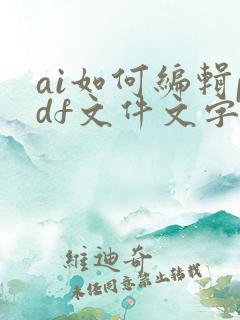 ai如何编辑p
df文件文字
维迪奇
未经同意禁止转载